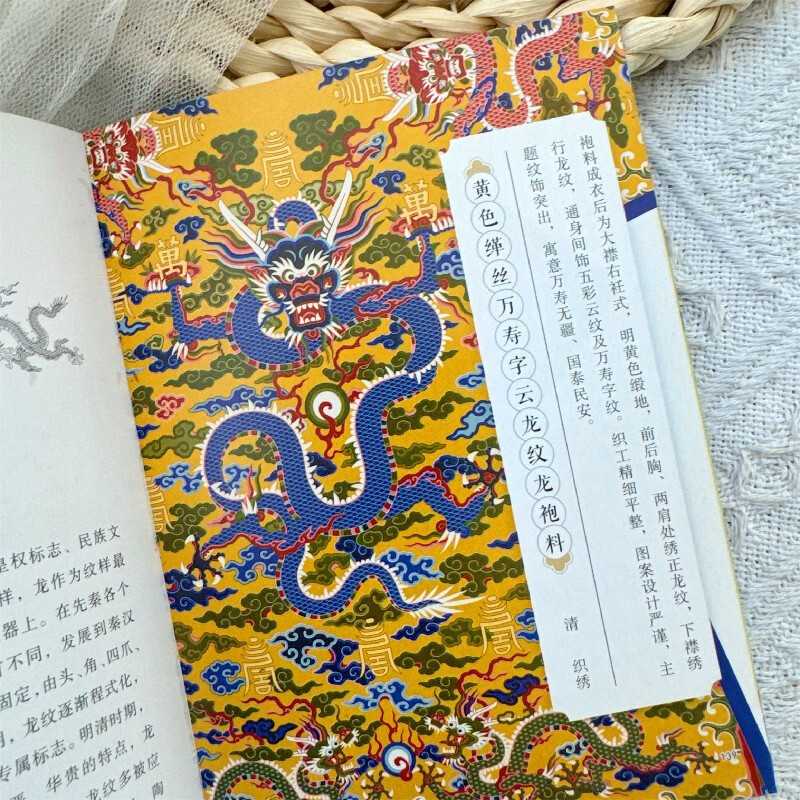 权标志、民族文
样，龙作为纹样最
器上。在先秦各个
不同，发展到秦汉
固定，由头、角、四爪、
，龙纹逐渐程式化，
专属标志。明清时期，
华贵的特点，龙
龙纹多被应
陶
萬
萬
黄色缂丝万寿字云龙纹龙袍料
袍料成衣后为大襟右衽式，明黄色缎地，前后胸、两肩处绣正龙纹，下襟绣
行龙纹，通身间饰五彩云纹及万寿字纹。织工精细平整，图案设计严谨，主
题纹饰突出，寓意万寿无疆、国泰民安。
清 织绣